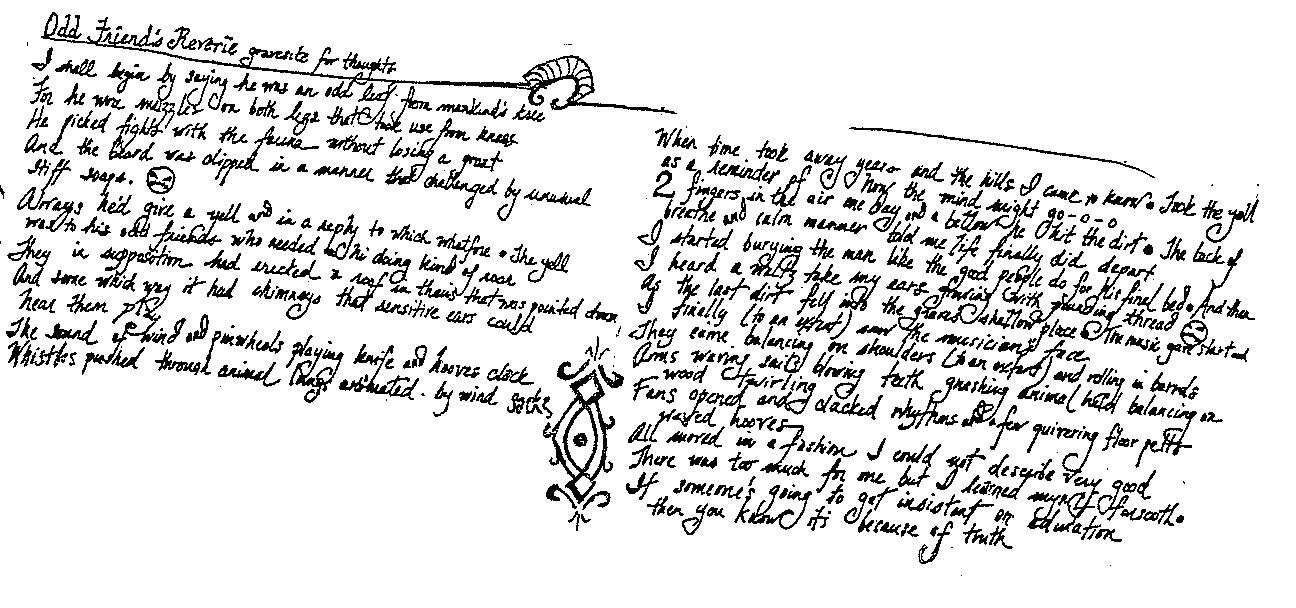 Odd Friend's Reverie gravesite for thoughts
I shall begin by saying he was an odd leaf from mankind's tree
For he wore muzzles on both legs that took use from knees
He picked fights with the fauna without losing a groat
And the beard was clipped in a manner that challenged by unusual
stiff soaps.
Always he'd give a yell and in a reply to which whatfore. The yell
was to his odd friends who needed a hi doing kind of roar
They in supposition had erected a roof in theirs that was pointed down,
And some which way it had chimneys that sensitive ears could
hear them play
The sound of wind and pinwheels playing knife and hooves clock
Whistles pushed through animal lungs animated by wind socks
When time took away years and the hills I came to know. Took the yell
as a reminder of how the mind might go-o-o
2 fingers in the air one day and a bellow he hit the dirt. The lack of
breathe and calm manner told me life finally did depart
I started burying the man like the good people do for his final bed. And then
I heard a waltz take my ears fencing with pounding thread
As the last dirt fell into the graves shallow place. The music gore started
I finally (to an extent) saw the musician's face
They came balancing on shoulders (to an extent) and rolling in barrels
Arms waving saits blowing teeth gnashing animal held balancing on
wood twirling
Fans opened and clacked rhythms and a few quivering floor pelts
grazed hooves
All moved in a fashion I could not describe very good
There was too much for one but I learned myself forsooth.
If someone's going to get insistent on education
then you know it's because of truth